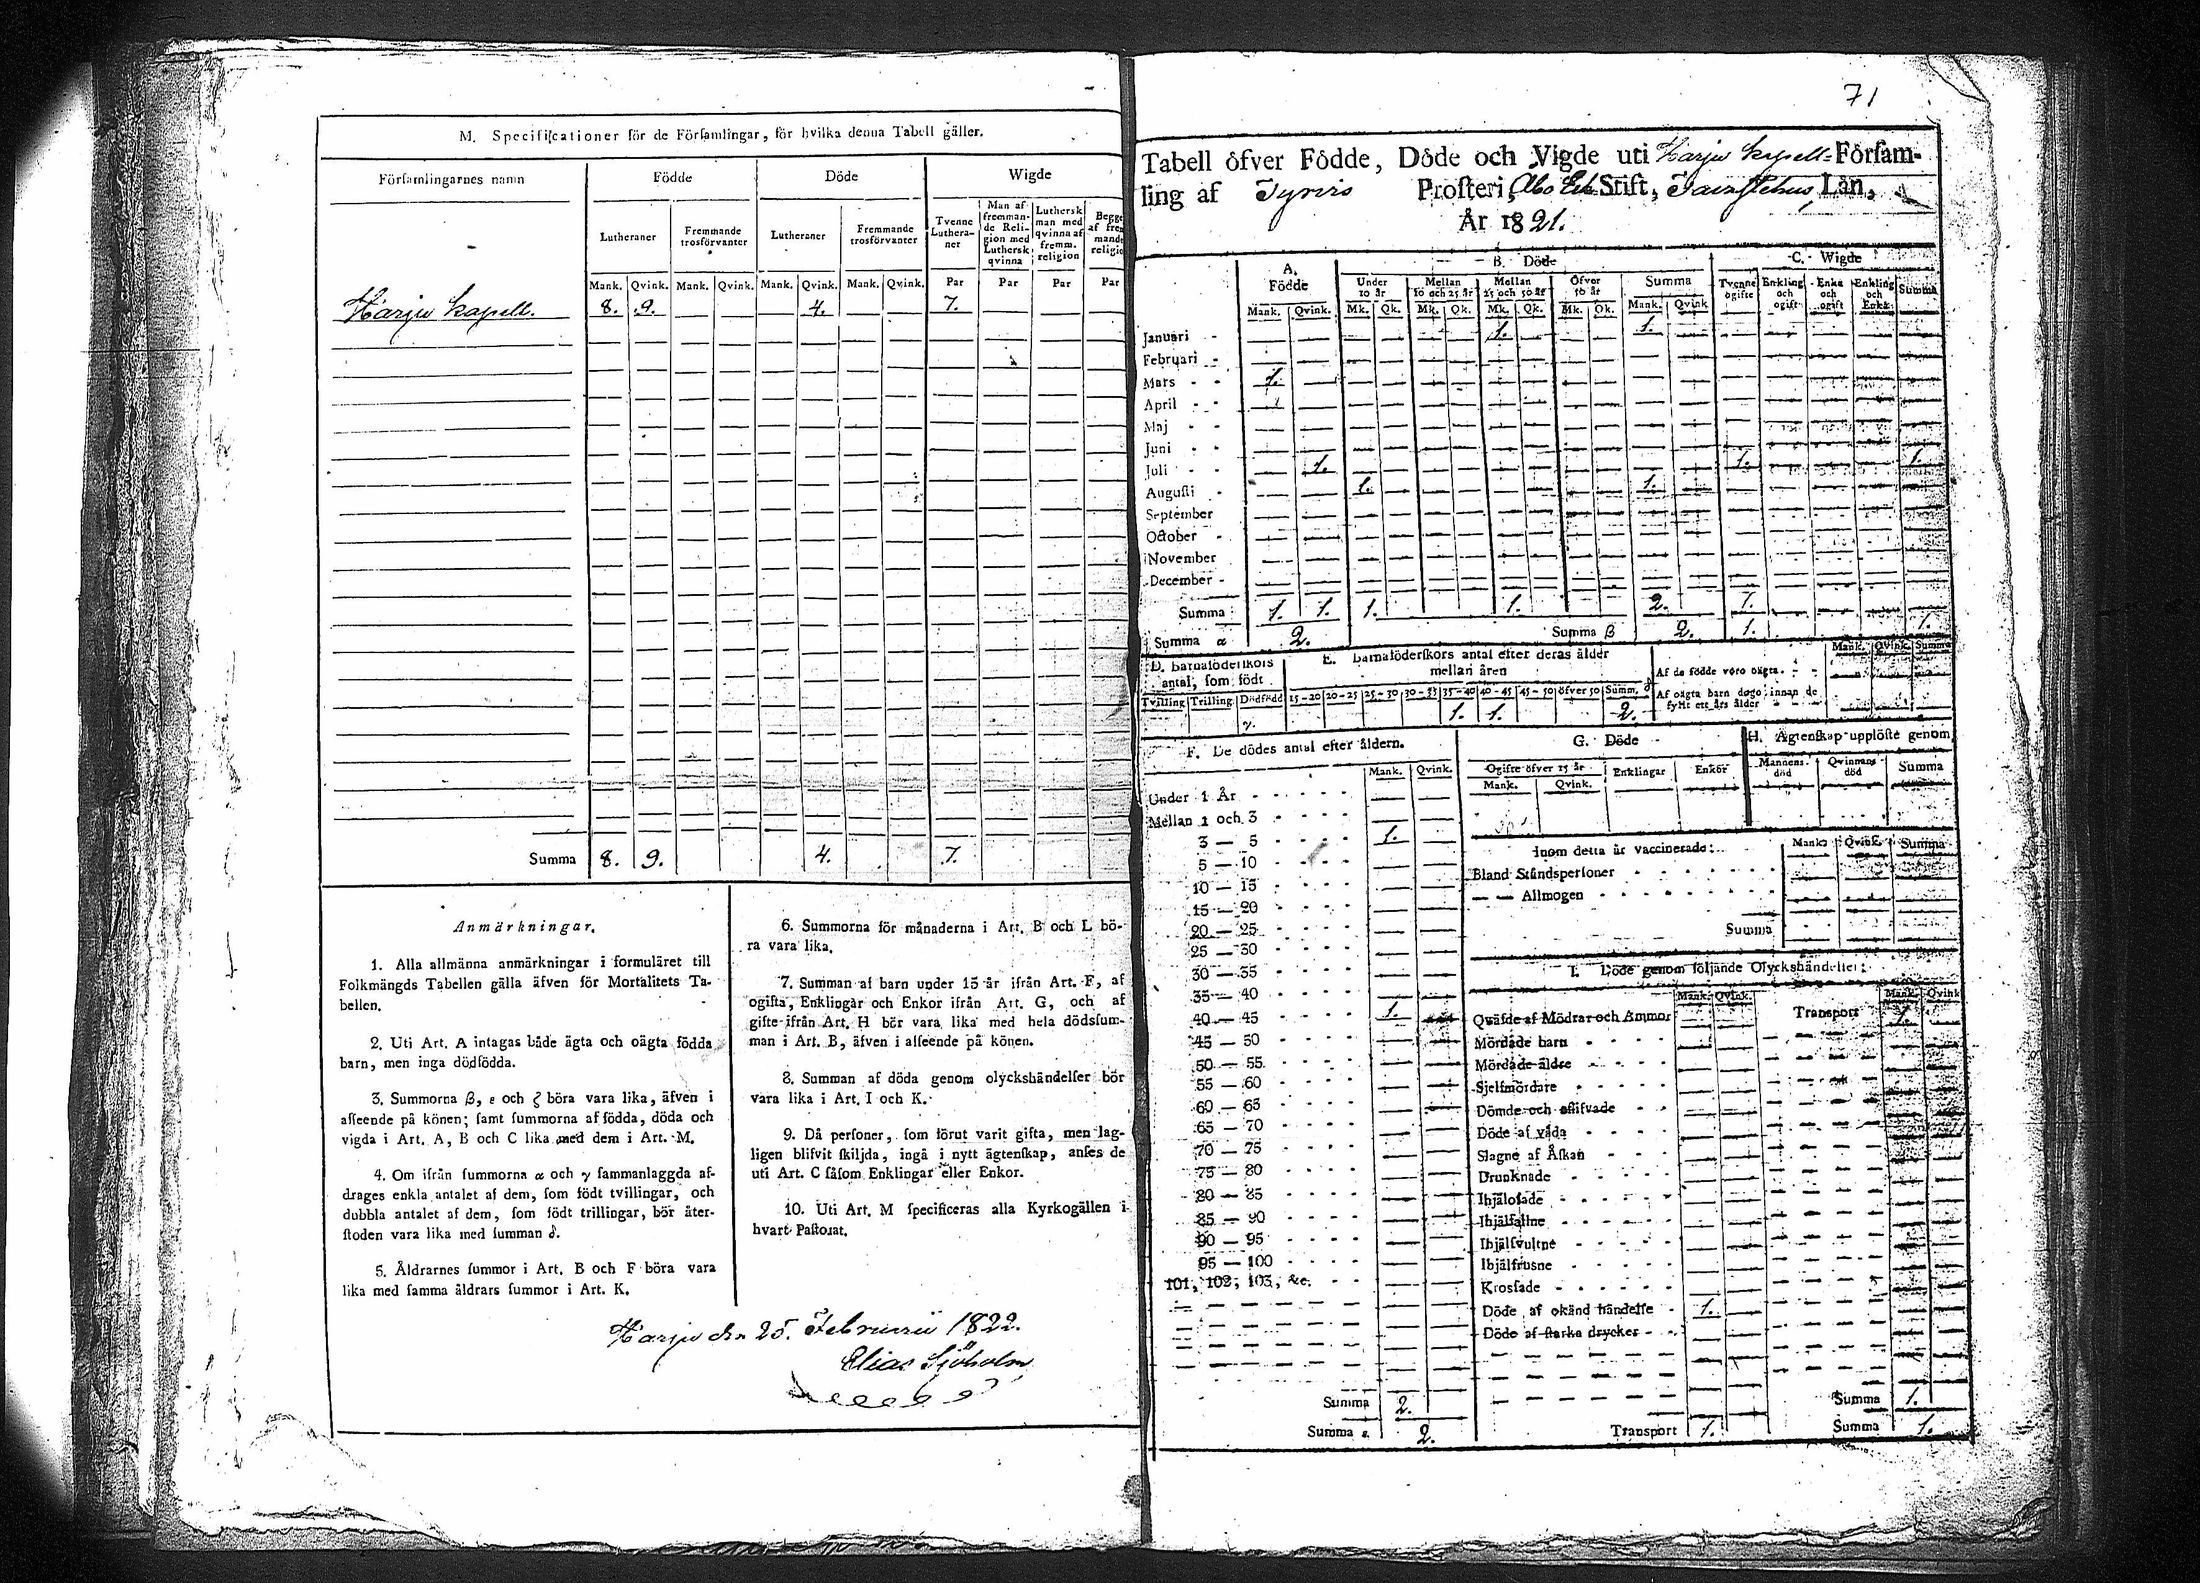 M. Specificationer för de Församlingar, för hvilka denna Tabell gäller.
Församlingarnes namn Födde Döde Wigde
Lutheraner Fremmande trosförvanter Lutheraner Fremmande trosförvanter Tvenne Lutheraner Man af fremmande Religion med Luthersk qvinna Luthersk man med qvinna af fremm. religion
Mank. Qvink. Mank. Qvink. Mank. Qvink. Mank. Qvink. Par Par Par Par
Harju kapell. 8. 9. 4. 7.
Summa 8. 9. 4. 7.
Anmärkningar.
1. Alla allmänna anmärkningar i formuläret till
Folkmängds Tabellen gälla äfven för Mortalitets Ta-
bellen.
2. Uti Art. A intagas både ägta och oägta födda
barn, men inga dödfödda.
3. Summorna β, ε och ζ böra vara lika, äfven i
afseende på könen; samt summorna af födda, döda och
vigda i Art. A, B och C lika med dem i Art. M.
4. Om ifrån summorna α och γ sammanlaggda af-
drages enkla antalet af dem, som födt tvillingar, och
dubbla antalet af dem, som födt trillingar, bör åter-
stoden vara lika med summan δ.
5. Åldrarnes summor i Art. B och F böra vara
lika med samma åldrars summor i Art. K.
6. Summorna för månaderna i Art. B och L bö-
ra vara lika.
7. Summan af barn under 15 år ifrån Art. F, af
ogifta, Enklingar och Enkor ifrån Art. G, och af
gifte ifrån Art. H bör vara lika med hela dödssum-
man i Art. B, äfven i afseende på könen.
8. Summan af döda genom olyckshändelser bör
vara lika i Art. I och K.
9. Då personer, som förut varit gifta, men lag-
ligen blifvit skiljda, ingå i nytt ägtenskap, anses de
uti Art. C såsom Enklingar eller Enkor.
10. Uti Art. M specificeras alla Kyrkogällen i
hvart Pastorat.
Harju den 25. Februarii 1822.
Elias Sjöholm
71
Tabell öfver Födde, Döde och Vigde uti Harju kapell Försam-
ling af Tyrvis Prosteri, Åbo Stift, Tavastehus Län,
År 1821.
A. Födde B. Döde C. Wigde
Under 10 år Mellan 10 och 25 år Mellan 25 och 50 år Öfver 50 år Summa Tvenne ogifte Enkling och ogift Enka och ogift Enkling och Enka Summa
Mank. Qvink. Mk. Qk. Mk. Qk. Mk. Qk. Mk. Qk. Mank. Qvink
Januari 1. 1.
Februari
Mars 1.
April
Maj
Juni
Juli 1. 1. 1.
Augusti 1. 1.
September
October
November
December
Summa 1. 1. 1. 1. 2. 1.
Summa α 2. Summa β 2. 1. 1.
D. Barnaföderskors antal, som födt
E. Barnaföderskors antal efter deras ålder mellan åren
Tvilling Trilling Dödfödd 15-20 20-25 25-30 30-35 35-40 40-45 45-50 öfver 50 Summ. δ
γ. 1. 1. 2.
Mank. Qvink. Summa
Af de födde voro oägta.
Af oägta barn dogo innan de
fyllt ett års ålder
F. De dödes antal efter åldern.
Mank. Qvink.
Under 1 År
Mellan 1 och 3
3 — 5 1.
5 — 10
10 — 15
15 — 20
20 — 25
25 — 30
30 — 35
35 — 40
40 — 45 1.
45 — 50
50 — 55
55 — 60
60 — 65
65 — 70
70 — 75
75 — 80
80 — 85
85 — 90
90 — 95
95 — 100
101, 102, 103, &c.
Summa 2.
Summa ε. 2.
G. Döde
Ogifte öfver 15 år Enklingar Enkor
Mank. Qvink.
H. Ägtenskap upplöste genom
Mannens död Qvinnans död Summa
Inom detta år vaccinerade: Mank. Qvink. Summa
Bland Ståndspersoner
— — Allmogen
Summa
I. Döde genom följande Olyckshändelser:
Mank. Qvink. Mank. Qvink
Qväfde af Mödrar och Ammor Transport 1.
Mördade barn
Mördade äldre
Sjelfmördare
Dömde och aflifvade
Döde af våda
Slagne af Åskan
Drunknade
Ihjälosade
Ihjälfallne
Ihjälsvultne
Ihjälfrusne
Krossade
Döde af okänd händelse 1.
Döde af starka drycker
Summa 1.
Transport 1. Summa 1.